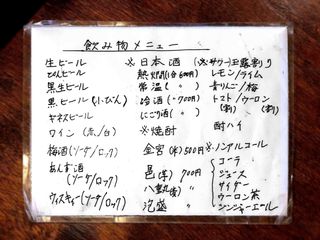 飲み物メニュー
生ビール
びんビール
黒生ビール
黒ビール(小びん)
ギネスビール
ワイン(赤/白)
梅酒(ソーダ/ロック)
あんず酒
(ソーダ/ロック)
ウィスキー(ソーダ/ロック)
※日本酒
熱燗(1合600円)
常温( 〃 )
冷酒( 〃700円)
にごり酒( 〃 )
※焼酎
金宮(米)500円
(芋)700円
八
泡盛 〃
(※サワー)
レモン/ライム
青りんご/梅
トマト/ウーロン
(割) (割)
酎ハイ
※ノンアルコール
コーラ
ジュース
サイダー
ウーロン茶
ジンジャーエール